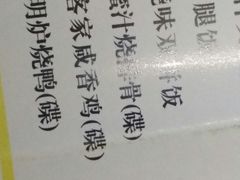 腿饭
味双拼饭
蜜汁烧排骨(碟)
客家咸香鸡(碟)
明炉烧鸭(碟)